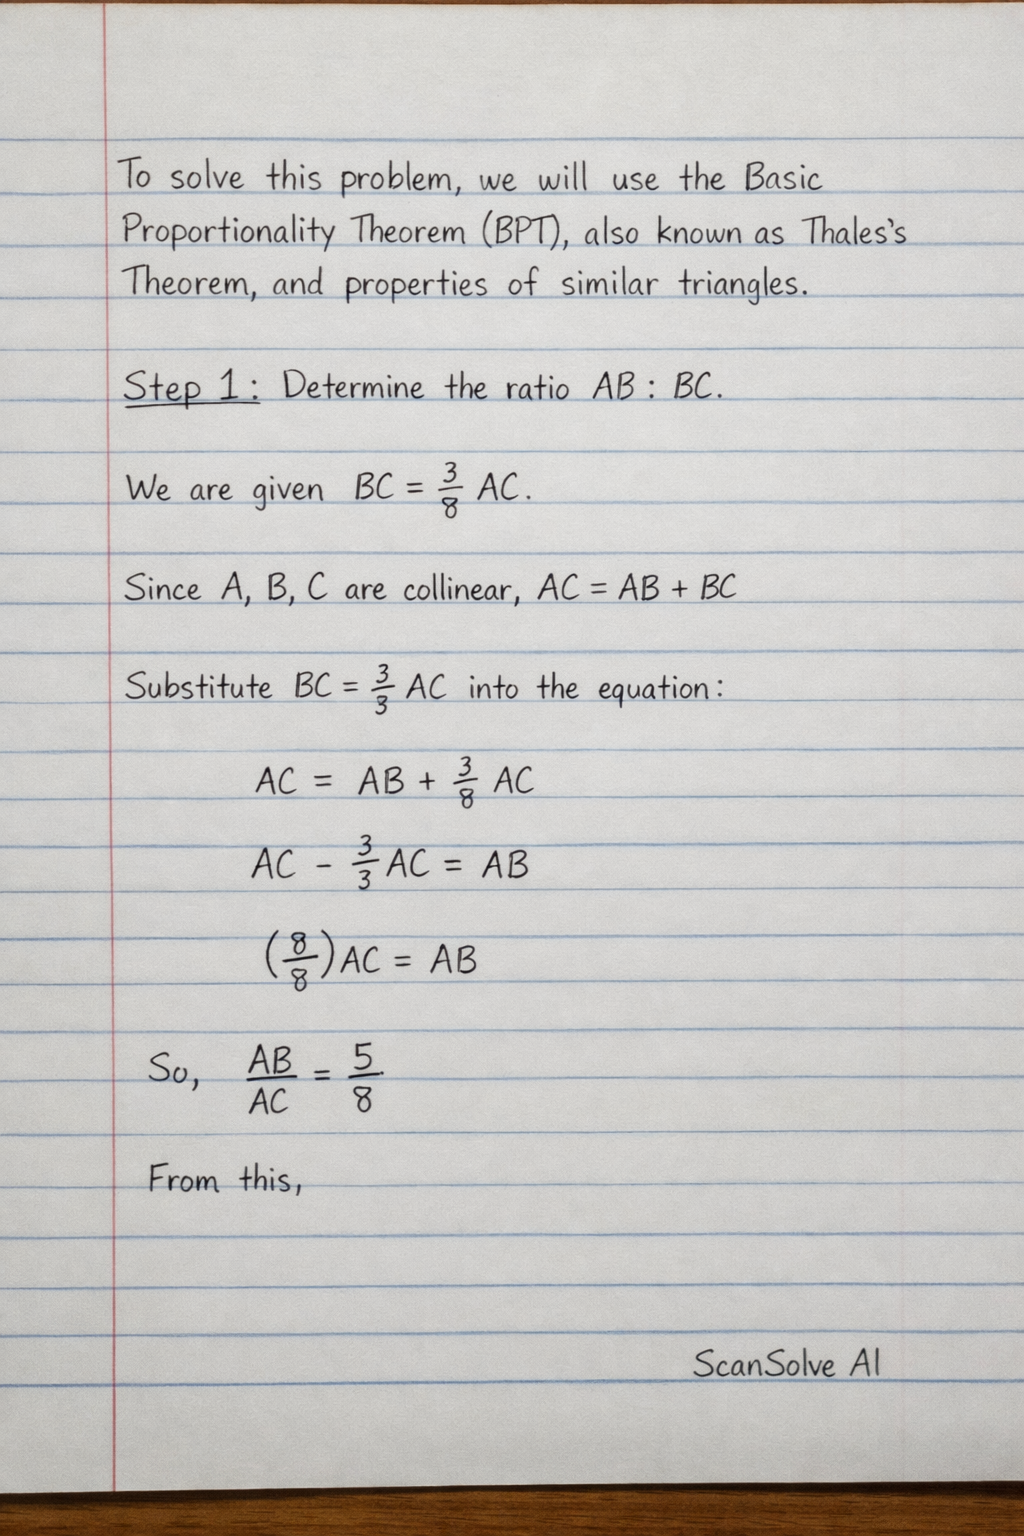 To solve this problem, we will use the Basic
Proportionality Theorem (BPT), also known as Thales's
Theorem, and properties of similar triangles.
Step 1: Determine the ratio AB : BC.
We are given BC = 3/8 AC.
Since A, B, C are collinear, AC = AB + BC
Substitute BC = 3/3 AC into the equation:
AC = AB + 3/8 AC
AC - 3/3 AC = AB
(8/8) AC = AB
So, AB/AC = 5/8
From this,
ScanSolve AI